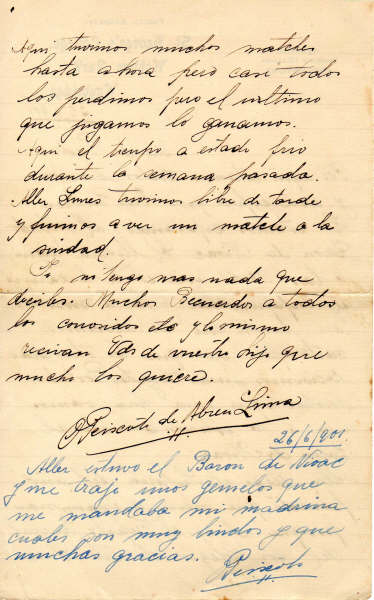 Aqui tuvimos muchos matches
hasta ahora pero casi todos
los perdimos pero el ultimo
que jugamos lo ganamos.
Aqui el tiempo a estado frio
durante la semana pasada.
Aller Lunes tuvimos libre de tarde
y fuimos a ver un match a la
siudad.
Yo ni tengo mas nada que
decirles. Muchos Recuerdos a todos
los conosidos etc y lo mismo
recivan Vds de vuestro hijo que
mucho los quiere.
Peixoto de Abreu Lima
26/6/901
Aller estuvo el Baron de Nioac
y me trajo unos gemelos que
me mandaba mi madrina
cuales son muy lindos y que
muchas gracias.
Peixoto